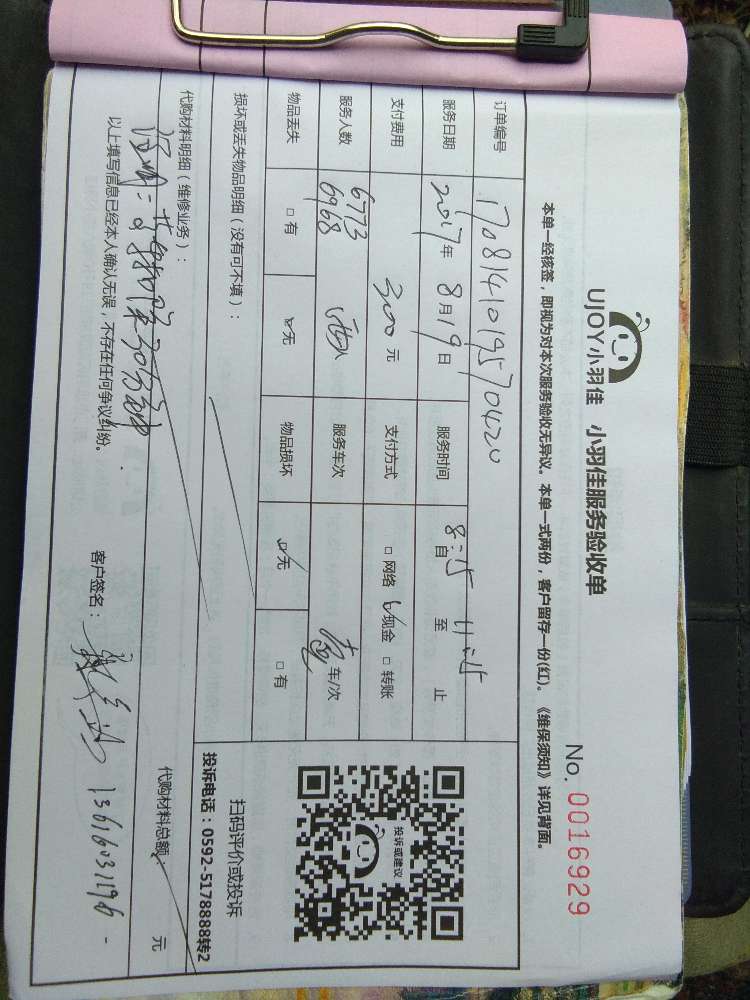 UJOY小羽佳 小羽佳服务验收单
No. 0016929
本单一经核签，即视为对本次服务验收无异议。本单一式两份，客户留存一份(红)。《维保须知》详见背面。
订单编号 1708141019570420
服务日期 2017年 8月19日 服务时间 自 8:15 至 11:15 止
支付费用 300元 支付方式 □网络 ☑现金 □转账
服务人数 6773 6968 两人 服务车次 车/次
物品丢失 □有 ☑无 物品损坏 ☑无 □有
损坏或丢失物品明细（没有可不填）：
代购材料明细（维修业务）：
代购材料总额 元
以上填写信息已经本人确认无误，不存在任何争议纠纷。
客户签名： 13616031196
投诉或建议
扫码评价或投诉
投诉电话：0592-5178888转2